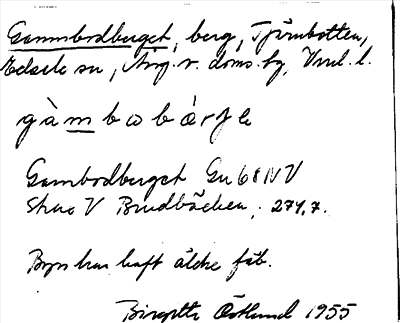 Gammbodberget, berg, Tjärnbotten,
Edsele sn, Ång. v. doms. fg, Vnrl. l.
gàmbωbárje
Gambodberget Gu 68 NV
strax V Brudbäcken, 271,7.
Byn har haft äldre fäb.
Birgitta Östlund 1955